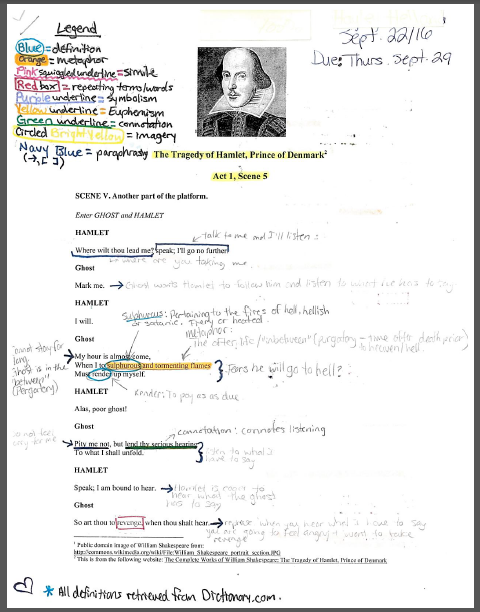 Legend
Blue = definition
Orange = metaphor
Pink squiggled underline = simile
Red box = repeating terms/words
Purple underline = symbolism
Yellow underline = Euphemism
Green underline = connotation
Circled Bright Yellow = Imagery
Navy Blue = paraphrasing
(→, [ ])
Sept. 22/16
Due: Thurs. Sept. 29
The Tragedy of Hamlet, Prince of Denmark²
Act 1, Scene 5
SCENE V. Another part of the platform.
Enter GHOST and HAMLET
HAMLET
talk to me and I'll listen:
Where wilt thou lead me? speak; I'll go no further.
where are you taking me
Ghost
Mark me. → Ghost wants Hamlet to follow him and listen to what he has to say
HAMLET
I will.
sulphurous: Pertaining to the fires of hell, hellish
or satanic. Fiery or heated.
metaphor:
the after life/"inbetween" (purgatory - time after death prior
to heaven/hell
Ghost
cannot stay for
long
Ghost is in the
"between"
(Purgatory)
My hour is almost come,
When I to sulphurous and tormenting flames
Must render up myself.
Fears he will go to hell?
render: To pay as due
HAMLET
Alas, poor ghost!
Ghost
connotation: connotes listening
Do not feel
sorry for me
Pity me not, but lend thy serious hearing
To what I shall unfold.
listen to what I
have to say
HAMLET
Speak; I am bound to hear. → Hamlet is
to
hear what the ghost
has to say
Ghost
So art thou to revenge, when thou shalt hear.
when you hear what I have to say
you are going to feel angry & want to take
revenge
¹ Public domain image of William Shakespeare from:
http://commons.wikimedia.org/wiki/File:William_Shakespeare_portrait_section.JPG
² This is from the following website: The Complete Works of William Shakespeare: The Tragedy of Hamlet, Prince of Denmark
* All definitions retrieved from Dictionary.com.